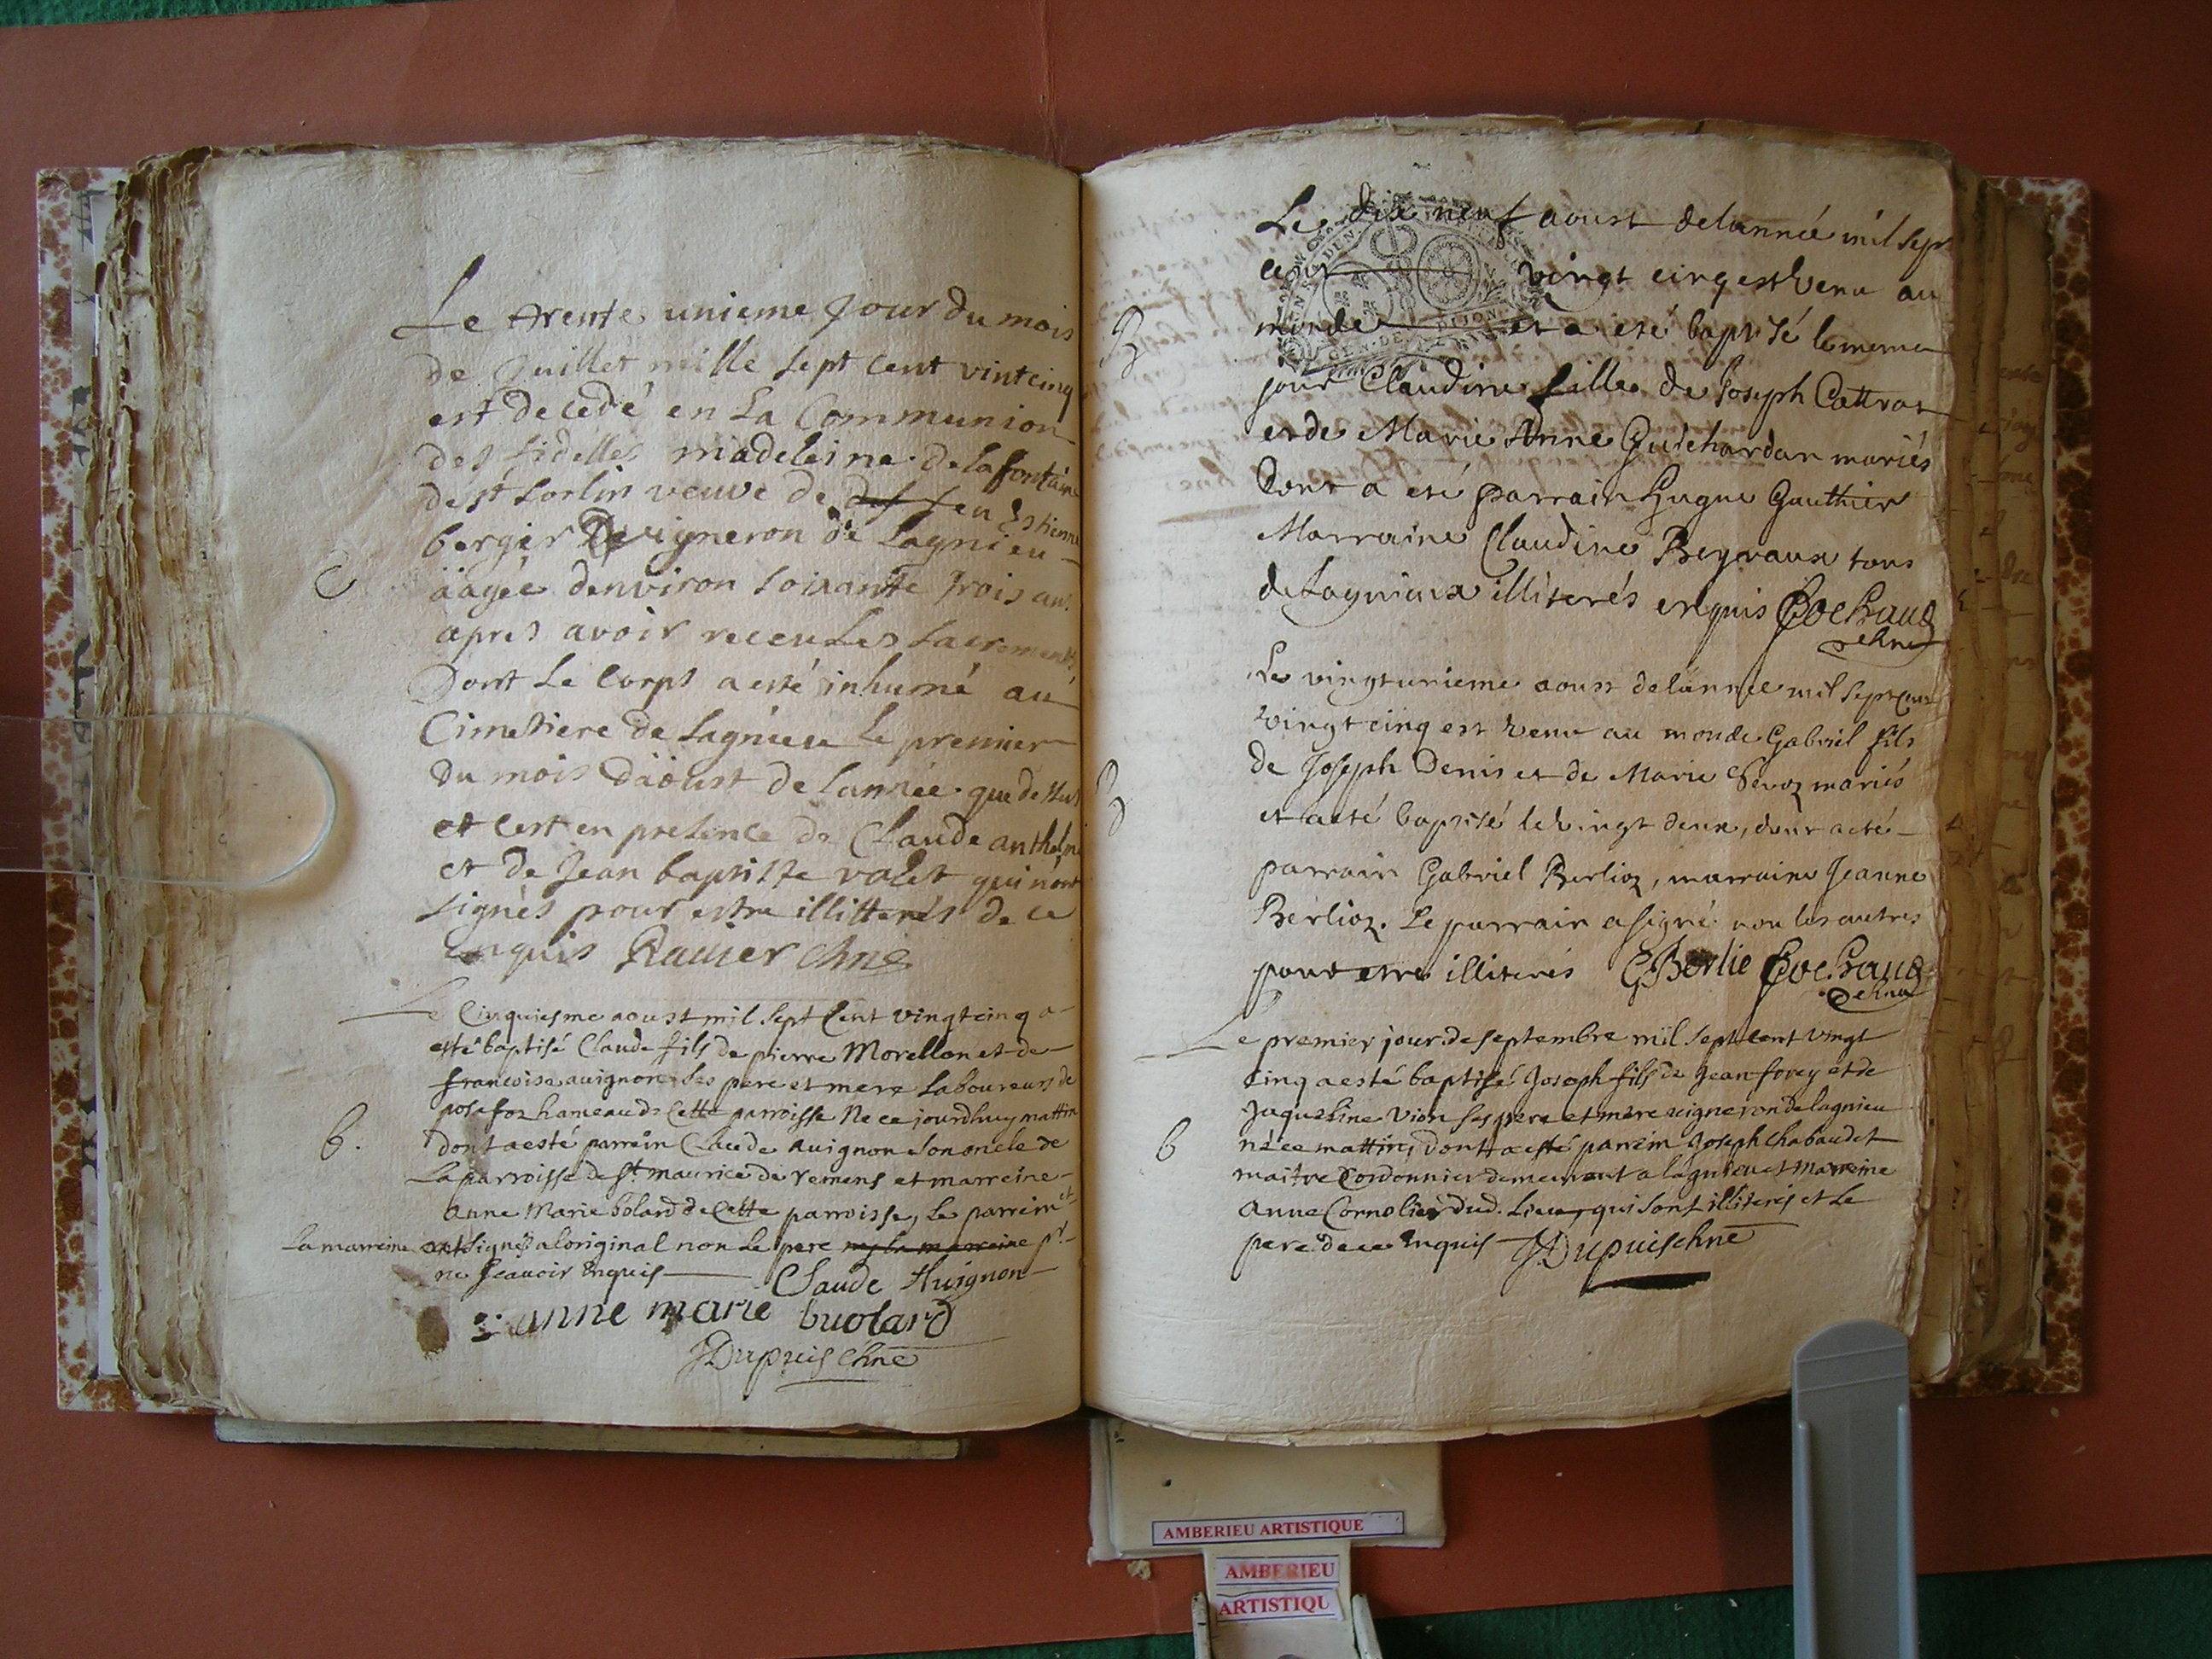 Le trente unieme Jour du mois
de Juillet mille sept cent vintcinq
est decedé en La Communion
des fidelles madeleine delafontaine
de st sorlin veuve de feu Estienne
berger vigneron de Lagnieu
äagée denviron soixante trois ans
apres avoir receu Les sacrements
Dont Le Corps a esté inhumé au
Cimetiere de Lagnieu Le premier
du mois d'aoust de Lannee que dessus
et cest en presence de Claude anthelme
et de Jean baptiste valet qui n'ont
signés pour estre illitterés de ce
enquis Ravier chne
C
Le Cinquiesme aoust mil sept Cent vingt cinq a
esté baptisé Claude fils de pierre Morellon et de
francoise avignon ses pere et mere Laboureurs de
posafoz hameau de Cette parroisse Ne ce jourdhuy mattin
b.
dont a esté parrein Claude avignon son oncle de
La parroisse de st maurice de remens et marreine
anne Marie bolard de Cette parroisse, Le parrein et
La marreine ont signés a loriginal non Le pere ny La marreine pr
ne sçavoir enquis Claude Avignon
anne marie buolard
JDupuis chne
Le dix neuf aoust delannée mil sept
cent vingt cinq est venu au
B
monde et a eté baptisé le meme
jour Claudine fille de Joseph Cattrat
et de Marie Anne Guichardan mariés
dont a eté parrain Hugue Gauthier
Marraine Claudine Reyraux tous
de Lagnieux illiterés enquis Cochaud
chne
Le vingtunieme aoust delannée mil sept cent
vingt cinq est venu au monde Gabriel fils
de Joseph Denis et de Marie mariés
B
et a eté baptisé le vingt deux, dont a eté
parrain Gabriel Berlioz, marraine Jeanne
Berlioz. Le parrain a signé non les autres
pour etre illiterés GBerlie Cochaud
chne
Le premier jour de septembre mil sept cent vingt
cinq a esté baptisé Joseph fils de Jean forey et de
Jaqueline Vion ses pere et mere vigneron de lagnieu
b
né ce mattin, dont a esté parrein Joseph Chabaudet
maitre Cordonnier demeurant a lagnieu et Marreine
anne Cornolier dud. Lieu, qui sont illiterés et Le
pere de ce enquis JDupuis chne
AMBERIEU ARTISTIQUE
AMBERIEU
ARTISTIQU